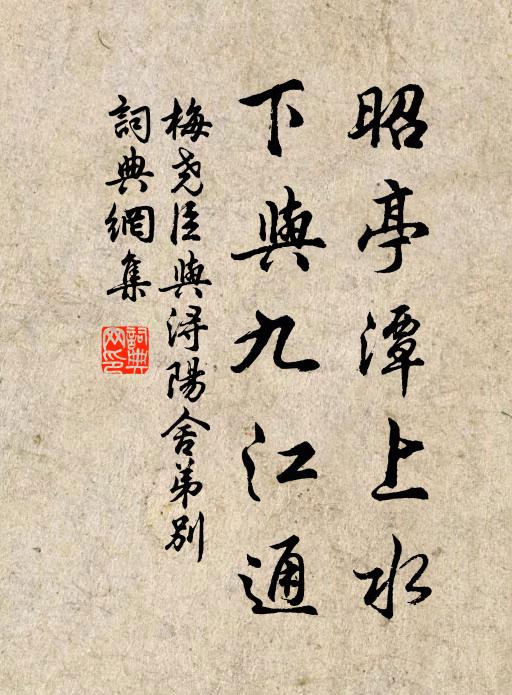 昭亭潭上水
下與九江通
梅尧臣與浔陽舍弟别
詞典網集
詞典网印